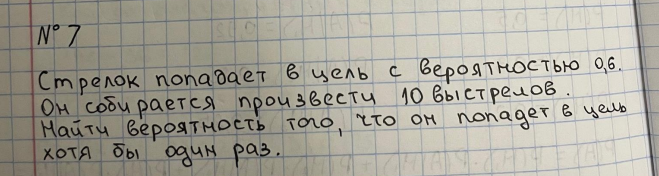 N° 7
Стрелок попадает в цель с вероятностью 0,6.
Он собирается произвести 10 выстрелов.
Найти вероятность того, что он попадет в цель
хотя бы один раз.